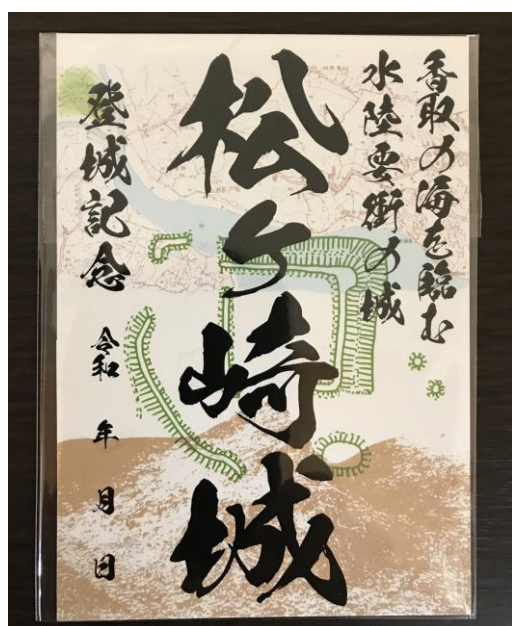 香取の海を臨む
水陸要衝の城
松ケ崎城
登城記念
令和 年 月 日